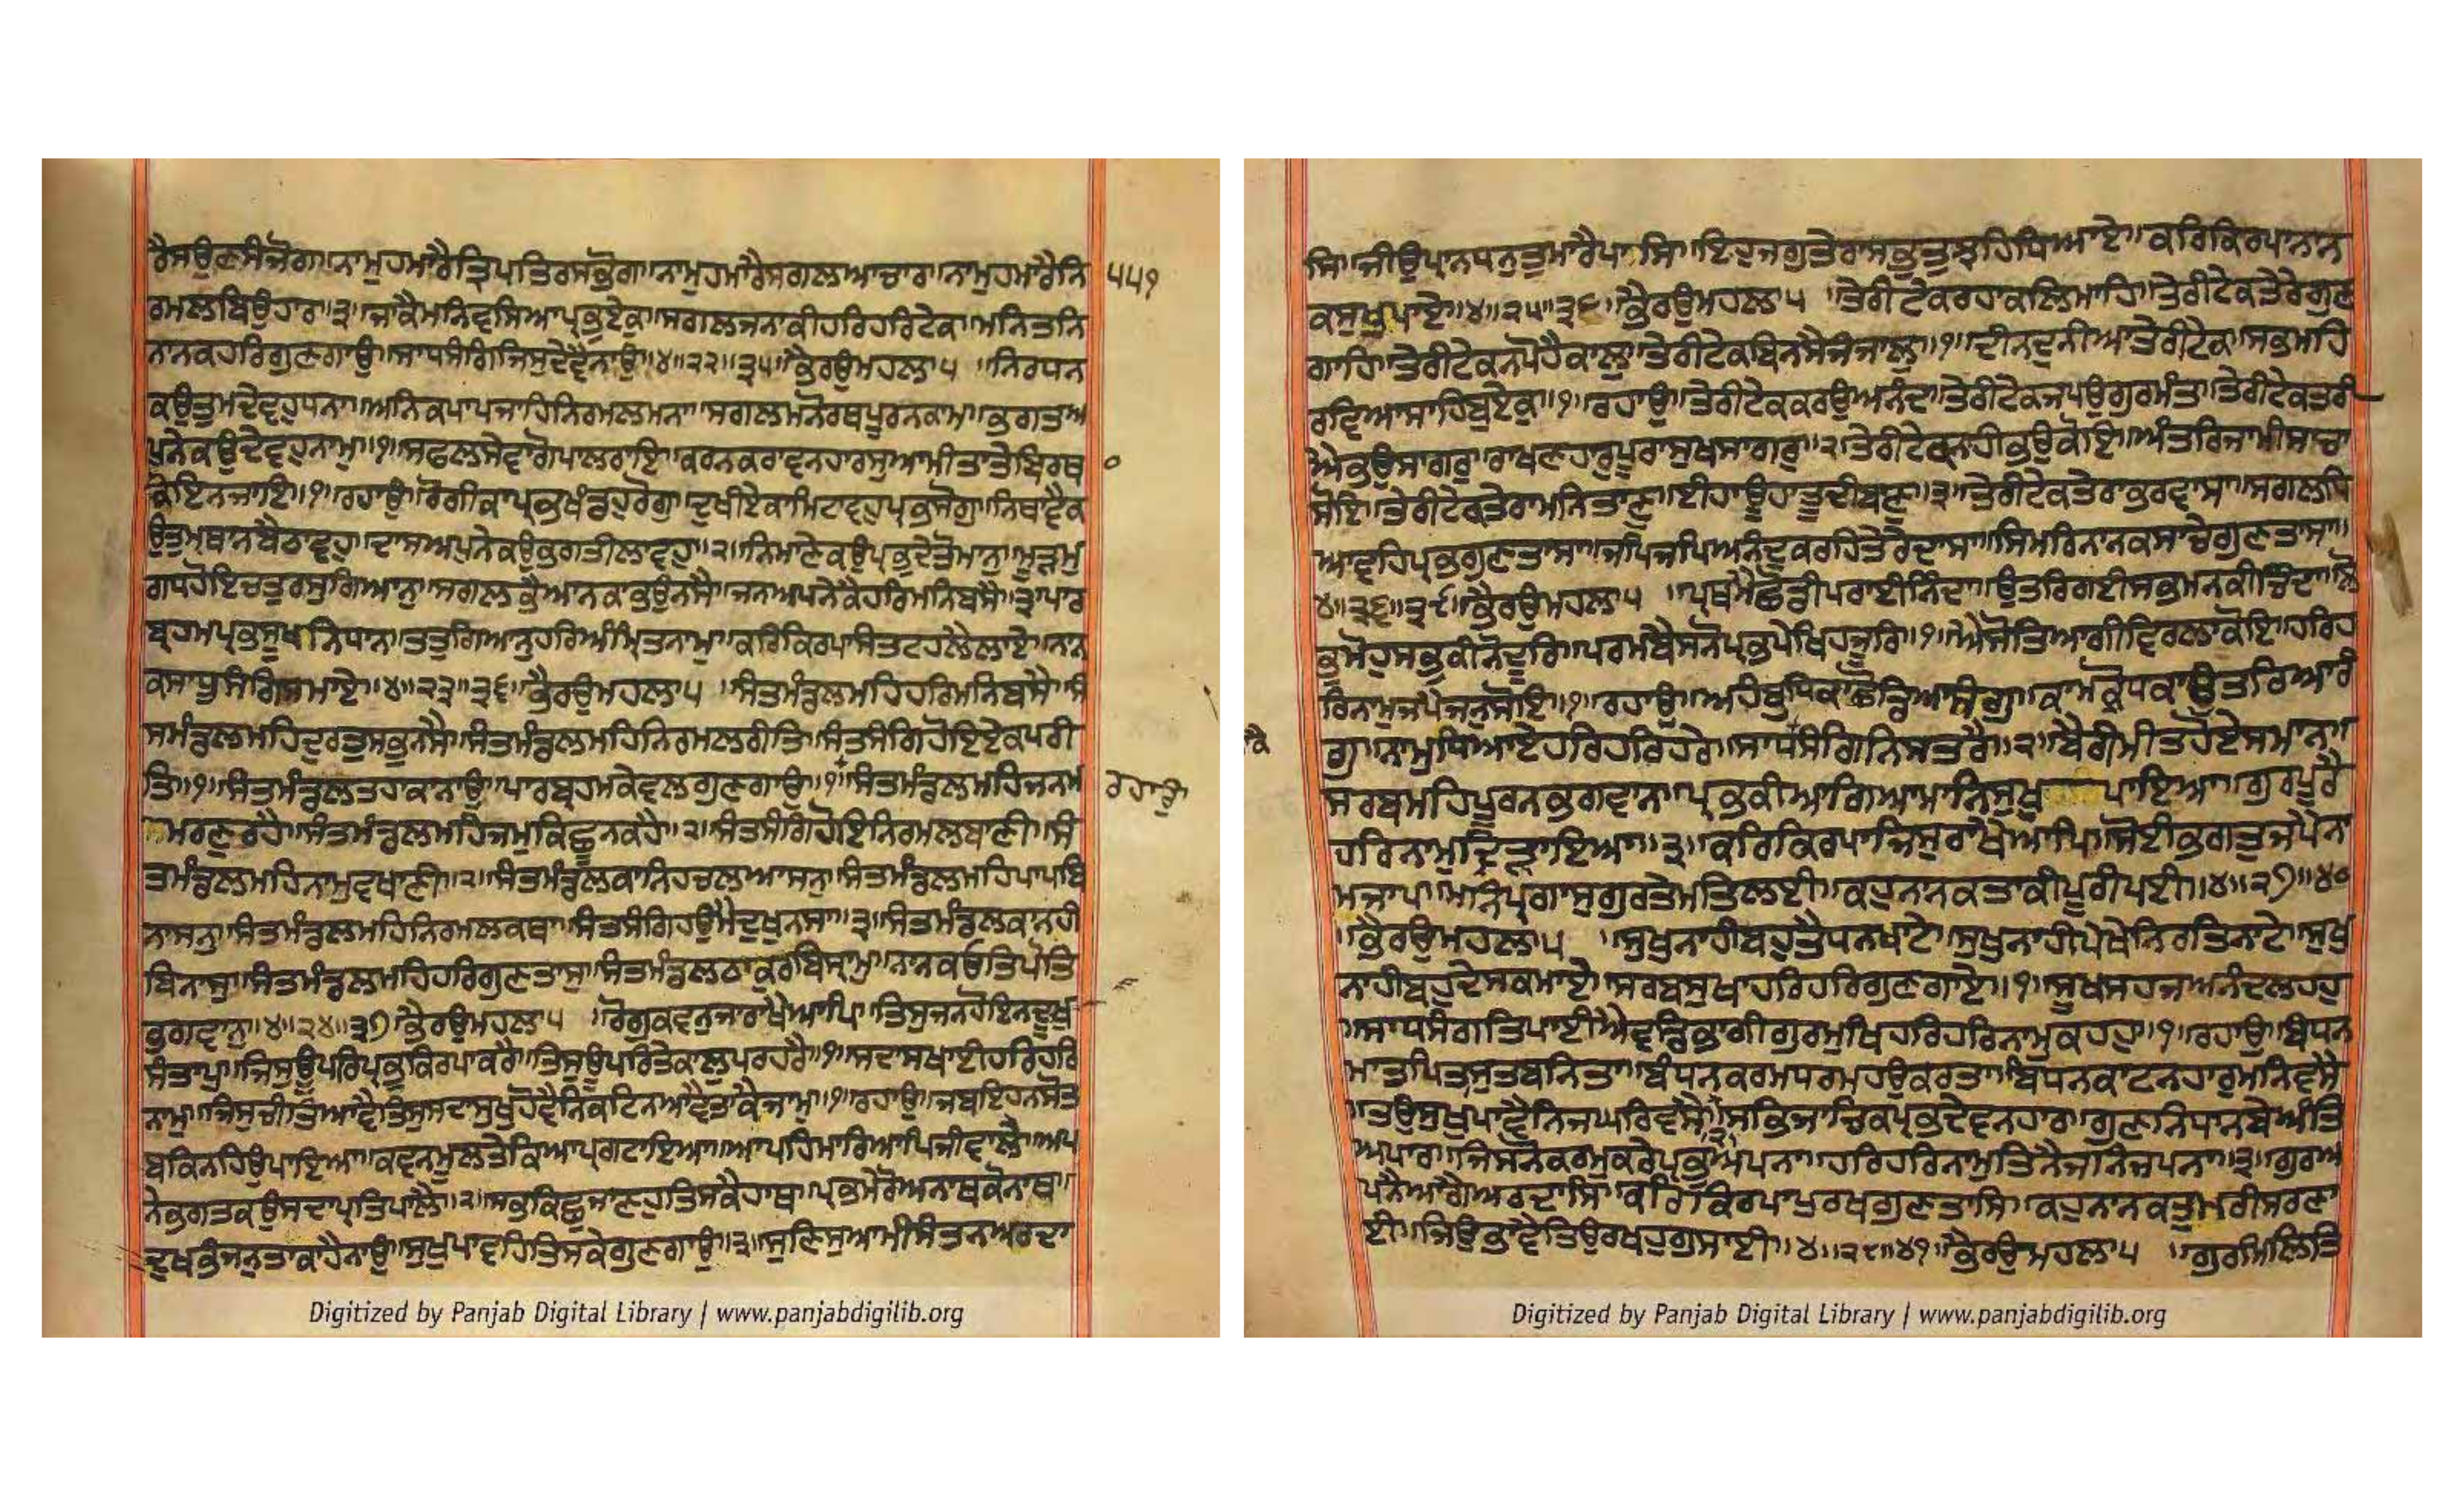 ਰੈਸਉਣਸੰਜੋਗ॥ਨਾਮੁਹਮਾਰੈਤ੍ਰਿਪਤਿਰਸਭੋਗ॥ਨਾਮੁਹਮਾਰੈਸਗਲਆਚਾਰ॥ਨਾਮੁਹਮਾਰੈਨਿ ੫੫੧
ਰਮਲਬਿਉਹਾਰ॥੩॥ਜਾਕੈਮਨਿਵਸਿਆਪ੍ਰਭੁਏਕ॥ਸਗਲਜਨਾਕੀਹਰਿਹਰਿਟੇਕ॥ਮਨਿਤਨਿ
ਨਾਨਕਹਰਿਗੁਣਗਾਉ॥ਸਾਧਸੰਗਿਜਿਸੁਦੇਵੈਨਾਉ॥੪॥੨੨॥੩੫॥ਭੈਰਉਮਹਲਾ੫ ॥ਨਿਰਧਨ
ਕਉਤੁਮਦੇਵਹੁਧਨਾ॥ਅਨਿਕਪਾਪਜਾਹਿਨਿਰਮਲਮਨਾ॥ਸਗਲਮਨੋਰਥਪੂਰਨਕਾਮ॥ਭਗਤਅ
ਪੁਨੇਕਉਦੇਵਹੁਨਾਮ॥੧॥ਸਫਲਸੇਵਾਗੋਪਾਲਰਾਇ॥ਕਰਨਕਰਾਵਨਹਾਰਸੁਆਮੀਤਾਤੇਬਿਰਥ
ਕੋਇਨਜਾਇ॥੧॥ਰਹਾਉ॥ਰੋਗੀਕਾਪ੍ਰਭਖੰਡਹੁਰੋਗੁ॥ਦੁਖੀਏਕਾਮਿਟਾਵਹੁਪ੍ਰਭਸੋਗੁ॥ਨਿਥਾਵੈਕ
ਉਤੁਮ੍ਥਾਨਬੈਠਾਵਹੁ॥ਦਾਸਅਪਨੇਕਉਭਗਤੀਲਾਵਹੁ॥੨॥ਨਿਮਾਣੇਕਉਪ੍ਰਭਦੇਤੋਮਾਨੁ॥ਮੂੜਮੁ
ਗਧਹੋਇਚਤੁਰਸੁਗਿਆਨੁ॥ਸਗਲਭੈਆਨਕਾਭਉਨਸੈ॥ਜਨਅਪਨੇਕੈਹਰਿਮਨਿਬਸੈ॥੩॥ਪਾਰ
ਬ੍ਰਹਮਪ੍ਰਭਸੂਖਨਿਧਾਨ॥ਤਤੁਗਿਆਨੁਹਰਿਅੰਮ੍ਰਿਤਨਾਮੁ॥ਕਰਿਕਿਰਪਾਸੰਤਟਹਲੈਲਾਏ॥ਨਾਨ
ਕਸਾਧੂਸੰਗਿਸਮਾਏ॥੪॥੨੩॥੩੬॥ਭੈਰਉਮਹਲਾ੫ ॥ਸੰਤਮੰਡਲਮਹਿਹਰਿਮਨਿਬਸੈ॥ਸੰ
ਸਮੰਡਲਮਹਿਦੁਰਤੁਸਭੁਨਸੈ॥ਸੰਤਮੰਡਲਮਹਿਨਿਰਮਲਰੀਤਿ॥ਸੰਤਸੰਗਿਹੋਇਏਕਪਰੀ
ਤਿ॥੧॥ਸੰਤਮੰਡਲਤਹਾਕਾਨਾਉ॥ਪਾਰਬ੍ਰਹਮਕੇਵਲਗੁਣਗਾਉ॥੧॥ਸੰਤਮੰਡਲਮਹਿਜਨਮ ਰਹਾਉ
ਮਰਣੁਰਹੈ॥ਸੰਤਮੰਡਲਮਹਿਜਮੁਕਿਛੂਨਕਹੈ॥੨॥ਸੰਤਸੰਗਿਹੋਇਨਿਰਮਲਬਾਣੀ॥ਸੰ
ਤਮੰਡਲਮਹਿਨਾਮੁਵਖਾਣੀ॥੨॥ਸੰਤਮੰਡਲਕਾਨਿਹਚਲਆਸਨੁ॥ਸੰਤਮੰਡਲਮਹਿਪਾਪਬਿ
ਨਾਸਨੁ॥ਸੰਤਮੰਡਲਮਹਿਨਿਰਮਲਕਥਾ॥ਸੰਤਸੰਗਿਹਉਮੈਦੁਖੁਨਸਾ॥੩॥ਸੰਤਮੰਡਲਕਾਨਹੀ
ਬਿਨਾਸੁ॥ਸੰਤਮੰਡਲਮਹਿਹਰਿਗੁਣਤਾਸੁ॥ਸੰਤਮੰਡਲਠਾਕੁਰਬਿਸ੍ਰਾਮੁ॥ਨਾਨਕਓਤਿਪੋਤਿ
ਭਗਵਾਨੁ॥੪॥੨੪॥੩੭॥ਭੈਰਉਮਹਲਾ੫ ॥ਰੋਗੁਕਵਨੁਜਾਰਾਖੈਆਪਿ॥ਤਿਸੁਜਨਹੋਇਨਦੂਖੁ
ਸੰਤਾਪੁ॥ਜਿਸੁਊਪਰਿਪ੍ਰਭੁਕਿਰਪਾਕਰੈ॥ਤਿਸੁਊਪਰਿਤੇਕਾਲੁਪਰਹਰੈ॥੧॥ਸਦਾਸਖਾਈਹਰਿਹਰਿ
ਨਾਮੁ॥ਜਿਸੁਚੀਤਿਆਵੈਤਿਸੁਸਦਾਸੁਖੁਹੋਵੈਨਿਕਟਿਨਆਵੈਤਾਕੈਜਾਮੁ॥੧॥ਰਹਾਉ॥ਜਬਇਹਨਸੋਤ
ਬਕਿਨਹਿਉਪਾਇਆ॥ਕਵਨਮੂਲਤੇਕਿਆਪ੍ਰਗਟਾਇਆ॥ਆਪਹਿਮਾਰਿਆਪਿਜੀਵਾਲੈ॥ਅਪ
ਨੇਭਗਤਕਉਸਦਾਪ੍ਰਤਿਪਾਲੈ॥੨॥ਸਭਕਿਛੁਜਾਣਹੁਤਿਸਕੈਹਾਥ॥ਪ੍ਰਭਮੇਰੋਅਨਾਥਕੋਨਾਥ॥
ਦੁਖਭੰਜਨੁਤਾਕਾਹੈਨਾਉ॥ਸੁਖੁਪਾਵਹਿਤਿਸਕੇਗੁਣਗਾਉ॥੩॥ਸੁਣਿਸੁਆਮੀਸੰਤਨਅਰਦਾ
Digitized by Panjab Digital Library | www.panjabdigilib.org
ਸਿ॥ਜੀਉਪ੍ਰਾਨਧਨੁਤੁਮਾਰੈਪਾਸਿ॥ਇਹੁਜਗੁਤੇਰਾਸਭਤੁਝਹਿਧਿਆਏ॥ਕਰਿਕਿਰਪਾਨਾਨ
ਕਸੁਖੁਪਾਏ॥੪॥੨੫॥੩੮॥ਭੈਰਉਮਹਲਾ੫ ॥ਤੇਰੀਟੇਕਰਹਾਕਲਿਮਾਹਿ॥ਤੇਰੀਟੇਕਤੇਰੇਗੁਣ
ਗਾਹਿ॥ਤੇਰੀਟੇਕਨਪੋਹੈਕਾਲੁ॥ਤੇਰੀਟੇਕਬਿਨਸੈਜੰਜਾਲੁ॥੧॥ਦੀਨਦੁਨੀਆਤੇਰੀਟੇਕ॥ਸਭਮਹਿ
ਰਵਿਆਸਾਹਿਬੁਏਕ॥੧॥ਰਹਾਉ॥ਤੇਰੀਟੇਕਕਰਉਆਨੰਦ॥ਤੇਰੀਟੇਕਜਪਉਗੁਰਮੰਤ॥ਤੇਰੀਟੇਕਤਰੀ
ਐਭਉਸਾਗਰੁ॥ਰਾਖਣਹਾਰੁਪੂਰਾਸੁਖਸਾਗਰੁ॥੨॥ਤੇਰੀਟੇਕਨਾਹੀਭਉਕੋਇ॥ਅੰਤਰਿਜਾਮੀਸਾਚਾ
ਸੋਇ॥ਤੇਰੀਟੇਕਤੇਰਾਮਨਿਤਾਣੁ॥ਈਹਾਊਹਾਤੂਦੀਬਾਣੁ॥੩॥ਤੇਰੀਟੇਕਤੇਰਾਭਰਵਾਸਾ॥ਸਗਲਧਿ
ਆਵਹਿਪ੍ਰਭਗੁਣਤਾਸਾ॥ਜਪਿਜਪਿਅਨੰਦੁਕਰਹਿਤੇਰੇਦਾਸਾ॥ਸਿਮਰਿਨਾਨਕਸਾਚੇਗੁਣਤਾਸਾ॥
੪॥੨੬॥੩੯॥ਭੈਰਉਮਹਲਾ੫ ॥ਪ੍ਰਥਮੇਛੋਡੀਪਰਾਈਨਿੰਦਾ॥ਉਤਰਿਗਈਸਭਮਨਕੀਚਿੰਦਾ॥ਲੋ
ਭੁਮੋਹੁਸਭੁਕੀਨੋਦੂਰਿ॥ਪਰਮਬੈਸਨੋਪ੍ਰਭਪੇਖਿਹਜੂਰਿ॥੧॥ਐਸੋਤਿਆਗੀਵਿਰਲਾਕੋਇ॥ਹਰਿਹ
ਰਿਨਾਮੁਜਪੈਜਨੁਸੋਇ॥੧॥ਰਹਾਉ॥ਅਹੰਬੁਧਿਕਾਛੋਡਿਆਸੰਗੁ॥ਕਾਮਕ੍ਰੋਧਕਾਉਤਰਿਆਰੰ
ਗੁ॥ਨਾਮੁਧਿਆਏਹਰਿਹਰਿਹਰੇ॥ਸਾਧਸੰਗਿਨਿਸਤਰੇ॥੨॥ਬੈਰੀਮੀਤਹੋਏਸਮਾਨ॥
ਸਰਬਮਹਿਪੂਰਨਭਗਵਾਨ॥ਪ੍ਰਭਕੀਆਗਿਆਮਾਨਿਸੁਖੁ ਪਾਇਆ॥ਗੁਰਪੂਰੈ
ਹਰਿਨਾਮੁਦ੍ਰਿੜਾਇਆ॥੩॥ਕਰਿਕਿਰਪਾਜਿਸੁਰਾਖੈਆਪਿ॥ਸੋਈਭਗਤੁਜਪੈਨਾ
ਮਜਾਪ॥ਮਨਿਪ੍ਰਗਾਸੁਗੁਰਤੇਮਤਿਲਈ॥ਕਹੁਨਾਨਕਤਾਕੀਪੂਰੀਪਈ॥੪॥੨੭॥੪੦
॥ਭੈਰਉਮਹਲਾ੫ ॥ਸੁਖੁਨਾਹੀਬਹੁਤੈਧਨਖਾਟੇ॥ਸੁਖੁਨਾਹੀਪੇਖੇਨਿਰਤਿਨਾਟੇ॥ਸੁਖੁ
ਨਾਹੀਬਹੁਦੇਸਕਮਾਏ॥ਸਰਬਸੁਖਾਹਰਿਹਰਿਗੁਣਗਾਏ॥੧॥ਸੂਖਸਹਜਆਨੰਦਲਹਹੁ
॥ਸਾਧਸੰਗਤਿਪਾਈਐਵਡਭਾਗੀਗੁਰਮੁਖਿਹਰਿਹਰਿਨਾਮੁਕਹਹੁ॥੧॥ਰਹਾਉ॥ਬੰਧਨ
ਮਾਤਪਿਤਸੁਤਬਨਿਤਾ॥ਬੰਧਨਕਰਮਧਰਮਹਉਕਰਤਾ॥ਬੰਧਨਕਾਟਨਹਾਰੁਮਨਿਵਸੈ
॥ਤਉਸੁਖੁਪਾਵੈਨਿਜਘਰਿਵਸੈ॥੨॥ਸਭਿਜਾਚਿਕਪ੍ਰਭਦੇਵਨਹਾਰ॥ਗੁਣਨਿਧਾਨਬੇਅੰਤ
ਅਪਾਰ॥ਜਿਸਨੋਕਰਮੁਕਰੇਪ੍ਰਭੁਅਪਨਾ॥ਹਰਿਹਰਿਨਾਮੁਤਿਨੈਜਨਿਜਪਨਾ॥੩॥ਗੁਰਅ
ਪਨੈਆਗੈਅਰਦਾਸਿ॥ਕਰਿਕਿਰਪਾਪੁਰਖਗੁਣਤਾਸਿ॥ਕਹੁਨਾਨਕਤੁਮਰੀਸਰਣਾ
ਈ॥ਜਿਉਭਾਵੈਤਿਉਰਖਹੁਗੁਸਾਈ॥੪॥੨੮॥੪੧॥ਭੈਰਉਮਹਲਾ੫ ॥ਗੁਰਮਿਲਿਤਿ
Digitized by Panjab Digital Library | www.panjabdigilib.org